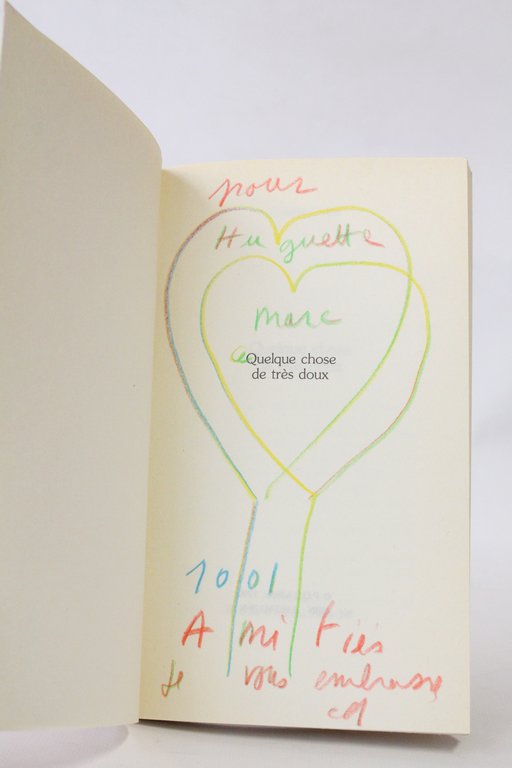 pour
Huguette
marc
Quelque chose
de très doux
1001
Amitiés
Je vous embrasse